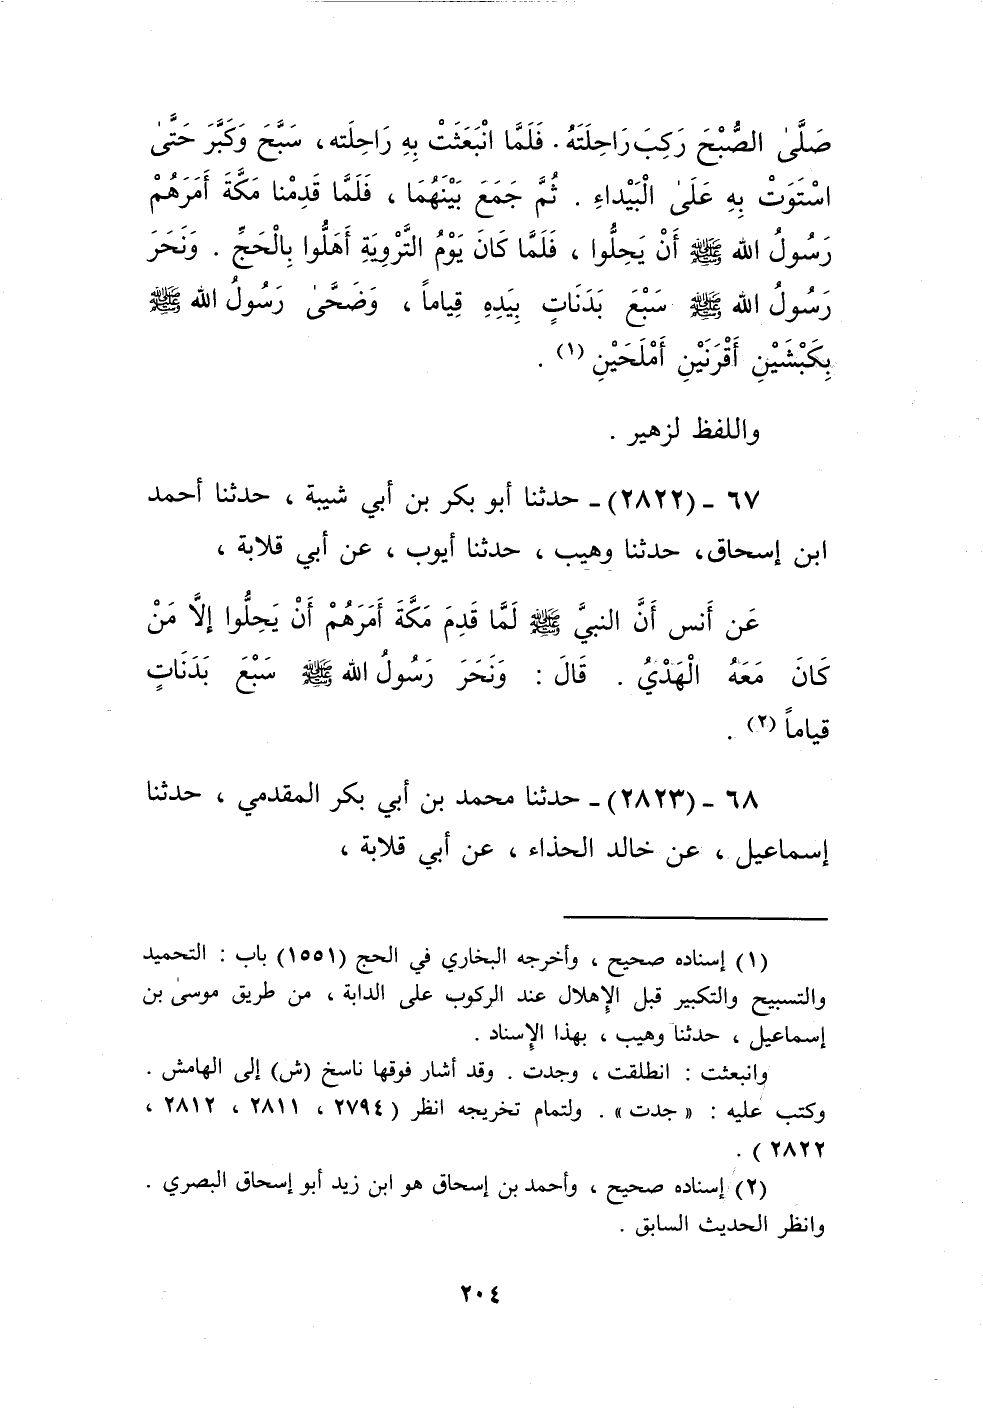 صَلَّىٰ الصُّبْحَ رَكِبَ رَاحِلَتَهُ . فَلَمَّا انْبَعَثَتْ بِهِ رَاحِلَته ، سَبَّحَ وَكَبَّرَ حَتَّىٰ
اسْتَوَتْ بِهِ عَلَىٰ الْبَيْداءِ . ثُمَّ جَمَعَ بَيْنَهُمَا ، فَلَمَّا قَدِمْنا مَكَّةَ أَمَرَهُمْ
رَسُولُ الله ﷺ أَنْ يَحِلُّوا ، فَلَمَّا كَانَ يَوْمُ التَّرْوِيَةِ أَهَلُّوا بِالْحَجِّ . وَنَحَرَ
رَسُولُ الله ﷺ سَبْعَ بَدَنَاتٍ بِيَدِهِ قِياماً ، وَضَحَّىٰ رَسُولُ الله ﷺ
بِكَبْشَيْنِ أَقْرَنَيْنِ أَمْلَحَيْنِ (١) .
واللفظ لزهير .
٦٧ ـ (٢٨٢٢) ـ حدثنا أبو بكر بن أبي شيبة ، حدثنا أحمد
ابن إسحاق ، حدثنا وهيب ، حدثنا أيوب ، عن أبي قلابة ،
عَن أَنس أَنَّ النبيَّ ﷺ لَمَّا قَدِمَ مَكَّةَ أَمَرَهُمْ أَنْ يَحِلُّوا إِلَّا مَنْ
كَانَ مَعَهُ الْهَدْيُ . قَالَ : وَنَحَرَ رَسُولُ الله ﷺ سَبْعَ بَدَنَاتٍ
قياماً (٢) .
٦٨ ـ (٢٨٢٣) ـ حدثنا محمد بن أبي بكر المقدمي ، حدثنا
إسماعيل ، عن خالد الحذاء ، عن أبي قلابة ،
(١) إسناده صحيح ، وأخرجه البخاري في الحج (١٥٥١) باب : التحميد
والتسبيح والتكبير قبل الإهلال عند الركوب على الدابة ، من طريق موسىٰ بن
إسماعيل ، حدثنا وهيب ، بهذا الإسناد .
وانبعثت : انطلقت ، وجدت . وقد أشار فوقها ناسخ (ش) إلى الهامش .
وكتب عليه : « جدت » . ولتمام تخريجه انظر ( ٢٧٩٤ ، ٢٨١١ ، ٢٨١٢ ،
٢٨٢٢ ) .
(٢) إسناده صحيح ، وأحمد بن إسحاق هو ابن زيد أبو إسحاق البصري .
وانظر الحديث السابق .
٢٠٤